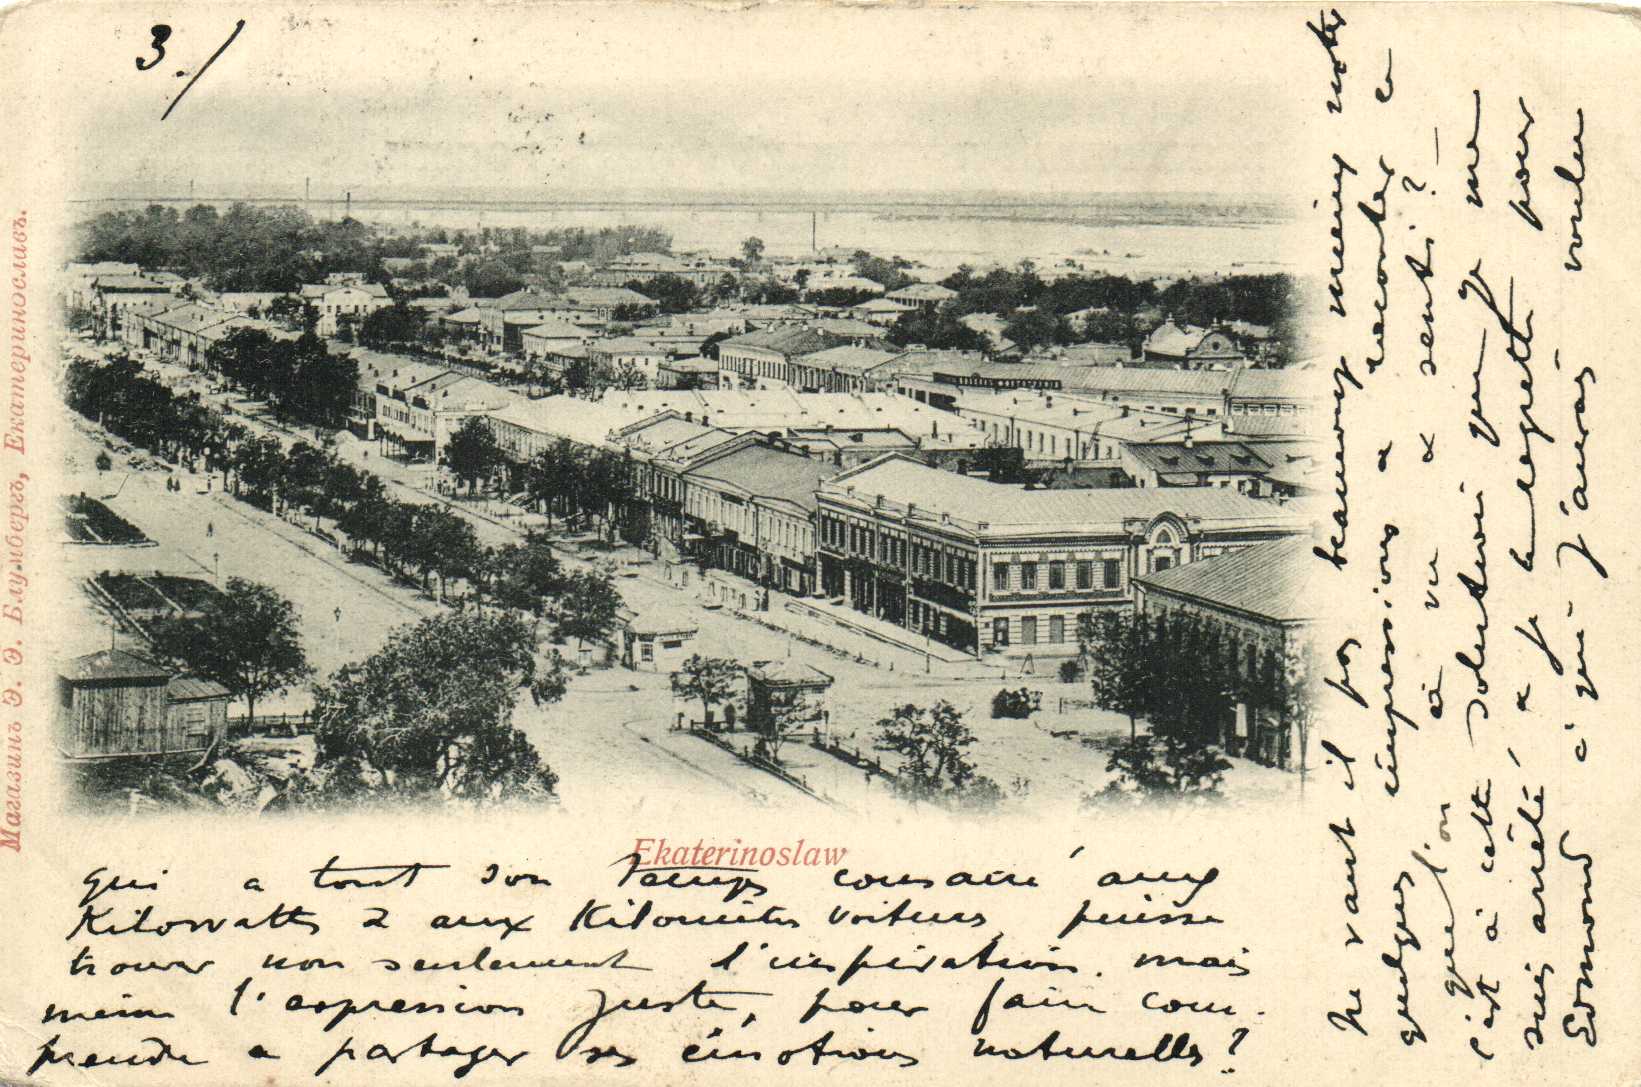 3./
Магазинъ Э. Э. Блумбергъ, Екатеринославъ.
Ekaterinoslaw
qui a tout son temps consacré aux
Kilowatts & aux Kilomètres voitures, puisse
trouver non seulement l'inspiration, mais
même l'expression juste, pour faire com-
prendre & partager ses émotions naturelles?
Ne vaut il pas beaucoup mieux noter
quelques impressions & raconter ce
que l'on a vu & senti? —
c'est à cette solution que je me
suis arrêté & je le regrette pour
Edmond à qui j'aurais voulu